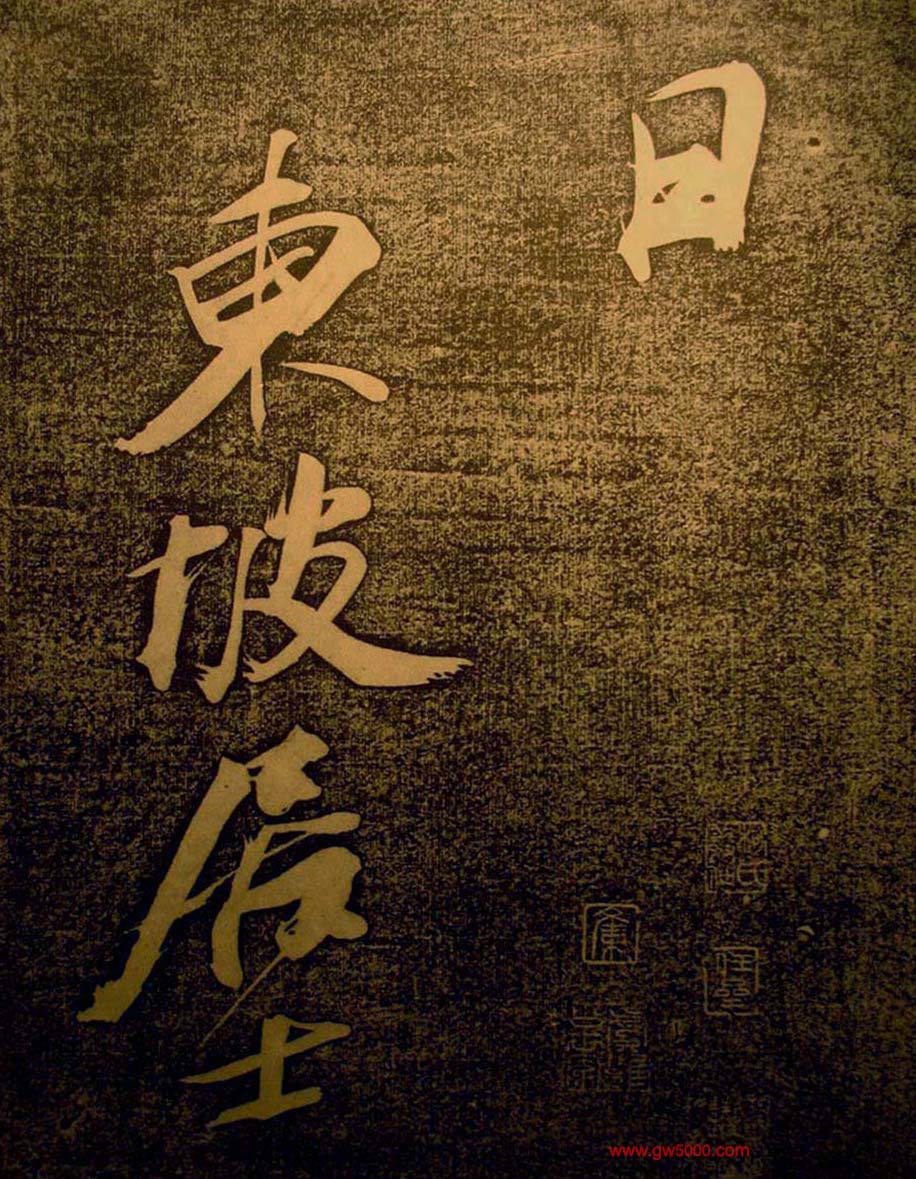 日
東坡居士
www.gw5000.com